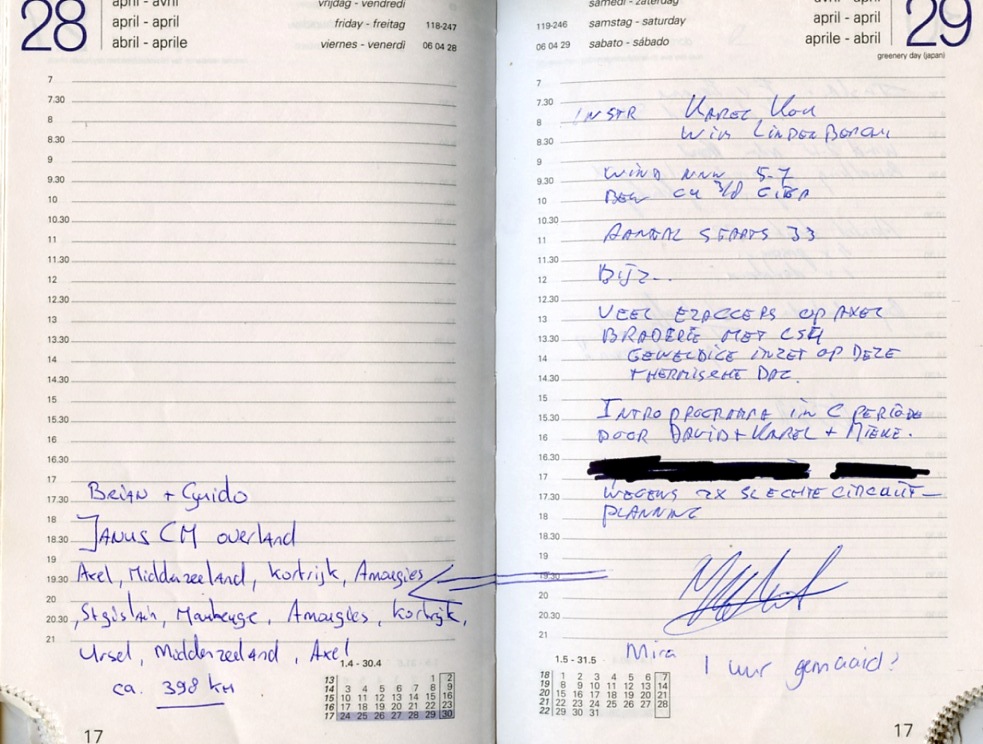 28
april - avril
april - april
abril - aprile
vrijdag - vendredi
friday - freitag 118-247
viernes - venerdì 06 04 28
7
7.30
8
8.30
9
9.30
10
10.30
11
11.30
12
12.30
13
13.30
14
14.30
15
15.30
16
16.30
17
17.30
18
18.30
19
19.30
20
20.30
21
Brian + Guido
JANUS CM overland
Axel, Middenzeeland, Kortrijk, Amougies
, St gislain, Maubeuge, Amougies, Kortrijk,
Ursel, Middenzeeland, Axel
ca. 398 km
1.4 - 30.4
13 1 2
14 3 4 5 6 7 8 9
15 10 11 12 13 14 15 16
16 17 18 19 20 21 22 23
17 24 25 26 27 28 29 30
17
samedi - zaterdag
119-246 samstag - saturday
06 04 29 sabato - sábado
avril - april
april - april
aprile - abril
29
greenery day (japan)
7
7.30
8
8.30
9
9.30
10
10.30
11
11.30
12
12.30
13
13.30
14
14.30
15
15.30
16
16.30
17
17.30
18
18.30
19
19.30
20
20.30
21
INSTR KAREL
WIM LINDENBERGH
WIND NNW 5-7
BEW CU 3/8
AANTAL STARTS 33
BIJZ..
VEEL EZACCERS OP AXEL
BRADERIE MET CSA
GEWELDIGE INZET OP DEZE
THERMISCHE DAG.
INTRO PROGRAMMA IN C PERIODE
DOOR DAVID + KAREL + MIEKE.
WEGENS 2X SLECHTE CIRCUIT-
PLANNING
Mira 1 uur gemaaid?
1.5 - 31.5
18 1 2 3 4 5 6 7
19 8 9 10 11 12 13 14
20 15 16 17 18 19 20 21
21 22 23 24 25 26 27 28
22 29 30 31
17